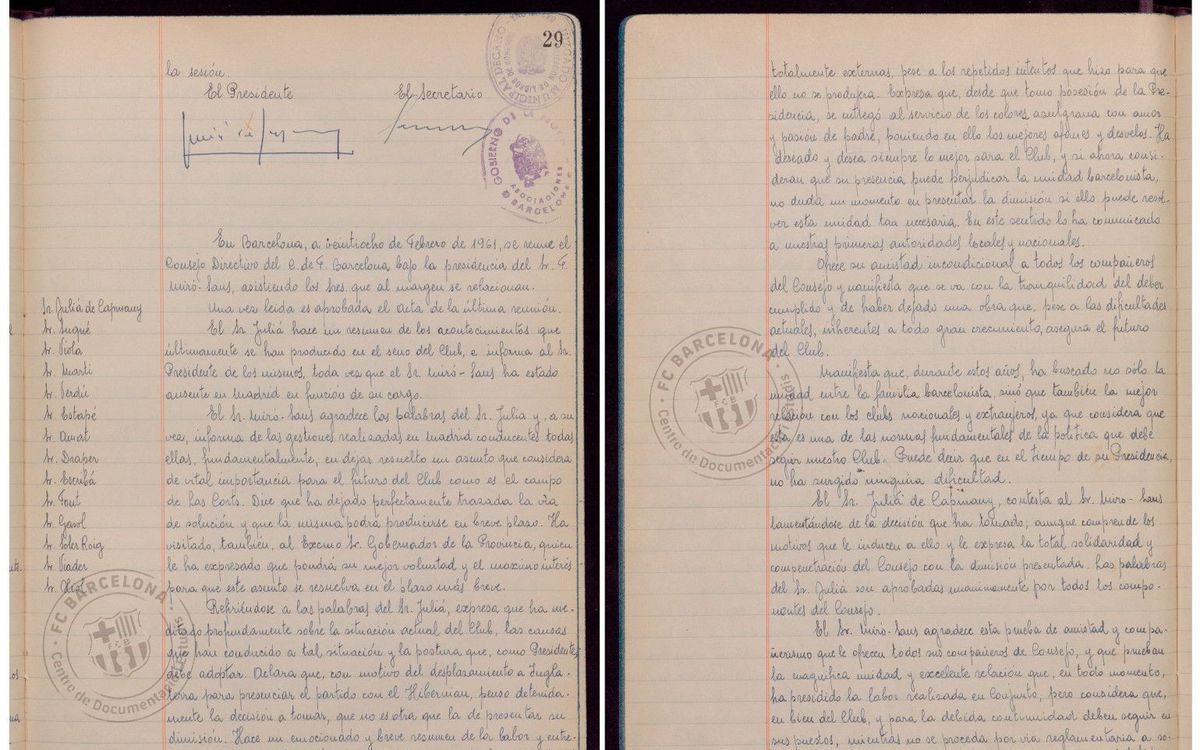 29
la sesión.
El Presidente El Secretario
En Barcelona, a veintiocho de Febrero de 1961, se reune el
Consejo Directivo del C. de F. Barcelona bajo la presidencia del Sr. F.
Miró-Sans, asistiendo los Sres. que al margen se relacionan.
Una vez leida es aprobada el acta de la última reunión.
El Sr. Juliá hace un resumen de los acontecimientos que
últimamente se han producido en el seno del Club, e informa al Sr.
Presidente de los mismos, toda vez que el Sr. Miró-Sans ha estado
ausente en Madrid en función de su cargo.
El Sr. Miró-Sans agradece las palabras del Sr. Juliá y, a su
vez, informa de las gestiones realizadas en Madrid conducentes todas
ellas, fundamentalmente, en dejar resuelto un asunto que considera
de vital importancia para el futuro del Club como es el campo
de Las Corts. Dice que ha dejado perfectamente trazada la vía
de solución y que la misma podrá producirse en breve plazo. Ha
visitado, también, al Excmo Sr. Gobernador de la Provincia, quien
le ha expresado que pondrá su mejor voluntad y el maximo interés
para que este asunto se resuelva en el plazo más breve.
Refiriéndose a las palabras del Sr. Juliá, expresa que ha me-
ditado profundamente sobre la situación actual del Club, las causas
que han conducido a tal situación y la postura que, como Presidente,
debe adoptar. Declara que, con motivo del desplazamiento a Ingla-
terra para presenciar el partido con el Hibernian, penso detenida-
mente la decisión a tomar, que no es otra que la de presentar su
dimisión. Hace un emocionado y breve resumen de la labor y entre-
Sr. Juliá de Capmany
Sr. Sugué
Sr. Viola
Sr. Marti
Sr. Serdú
Sr. Estapé
Sr. Amat
Sr. Draper
Sr. Escribá
Sr. Font
Sr. Gasol
Sr. Soler Roig
Sr. Viader
GOBIERNO DE LA
ASOCIACIONES
BARCELONA
MUNICIPAL DECANO
FC BARCELONA
FCB
Centre de Documentació i Estudis
totalmente externas, pese a los repetidos intentos que hizo para que
ello no se produjera. Expresa que, desde que tomo posesión de la Pre-
sidencia, se entregó al servicio de los colores azulgrana con amor
y pasión de padre, poniendo en ello los mejores afanes y desvelos. Ha
deseado y desea siempre lo mejor para el Club, y si ahora consi-
deran que su presencia puede perjudicar la unidad barcelonista,
no duda un momento en presentar la dimisión si ello puede resol-
ver esta unidad tan necesaria. En este sentido lo ha comunicado
a nuestras primeras autoridades locales y nacionales.
Ofrece su amistad incondicional a todos los compañeros
del Consejo y manifiesta que se va con la tranquilidad del deber
cumplido y de haber dejado una obra que, pese a las dificultades
actuales, inherentes a todo gran crecimiento, asegura el futuro
del Club.
Manifiesta que, durante estos años, ha buscado no solo la
unidad entre la familia barcelonista, sinó que también la mejor
relación con los clubs nacionales y extranjeros, ya que considera que
esta es una de las normas fundamentales de la politica que debe
seguir nuestro Club. Puede decir que en el tiempo de su Presidencia,
no ha surgido ninguna dificultad.
El Sr. Juliá de Capmany, contesta al Sr. Miró-Sans
lamentándose de la decisión que ha tomado; aunque comprende los
motivos que le inducen a ello y le expresa la total solidaridad y
compenetración del Consejo con la dimisión presentada. Las palabras
del Sr. Juliá son aprobadas unanimamente por todos los compo-
nentes del Consejo.
El Sr. Miró-Sans agradece esta prueba de amistad y compa-
ñerismo que le ofrecen todos sus compañeros de Consejo, y que prueban
la magnifica unidad y excelente relación que, en todo momento,
ha presidido la labor realizada en conjunto, pero considera que,
en bien del Club, y para la debida continuidad deben seguir en
sus puestos, mientras no se proceda por via reglamentaria a so-
FC BARCELONA
FCB
Centre de Documentació i Estudis